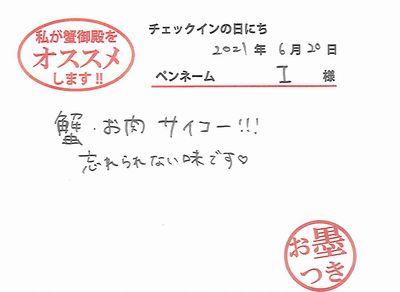 私が蟹御殿を
オススメ
します!!
チェックインの日にち
2021年 6月20日
ペンネーム I 様
蟹・お肉 サイコー!!!
忘れられない味です♡
お墨
つき